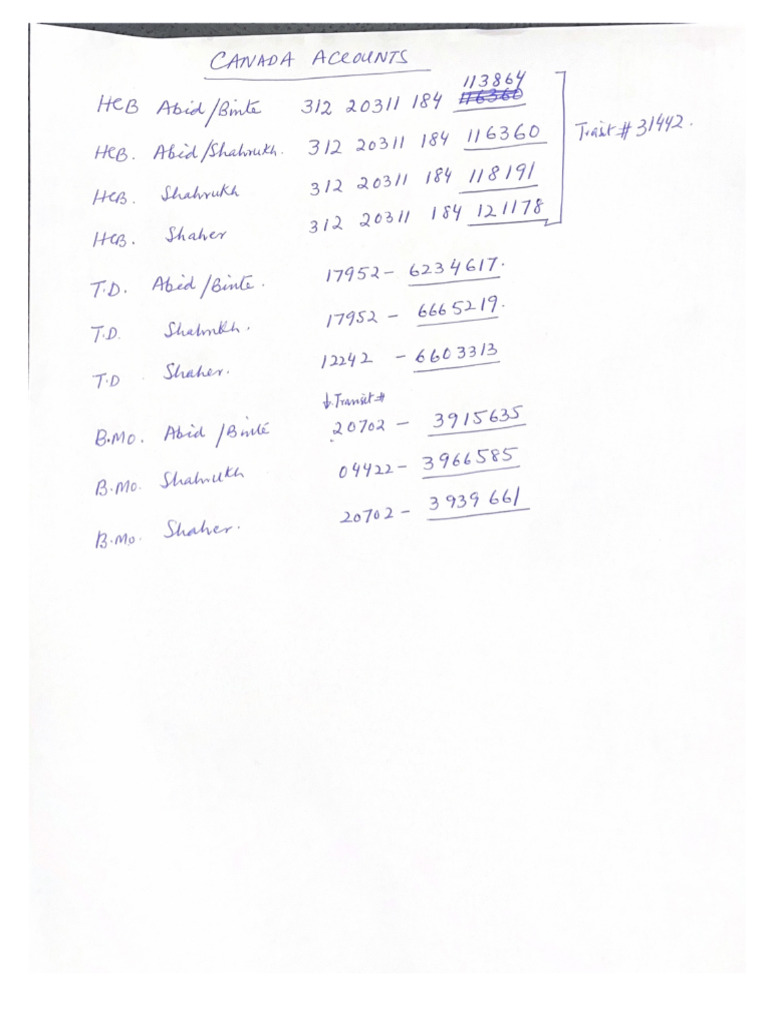 CANADA ACCOUNTS
113864
HCB Abid/Binte 312 20311 184 116360
HCB. Abid/Shahrukh. 312 20311 184 116360
Transit # 31442.
HCB. Shahrukh 312 20311 184 118191
HCB. Shaher 312 20311 184 121178
T.D. Abid/Binte. 17952- 6234617.
T.D. Shahrukh. 17952 - 6665219.
T.D Shaher. 12242 - 6603313
↓Transit #
B.Mo. Abid/Binte 20702 - 3915635
B.Mo. Shahrukh 04422- 3966585
B.Mo. Shaher. 20702 - 3939661